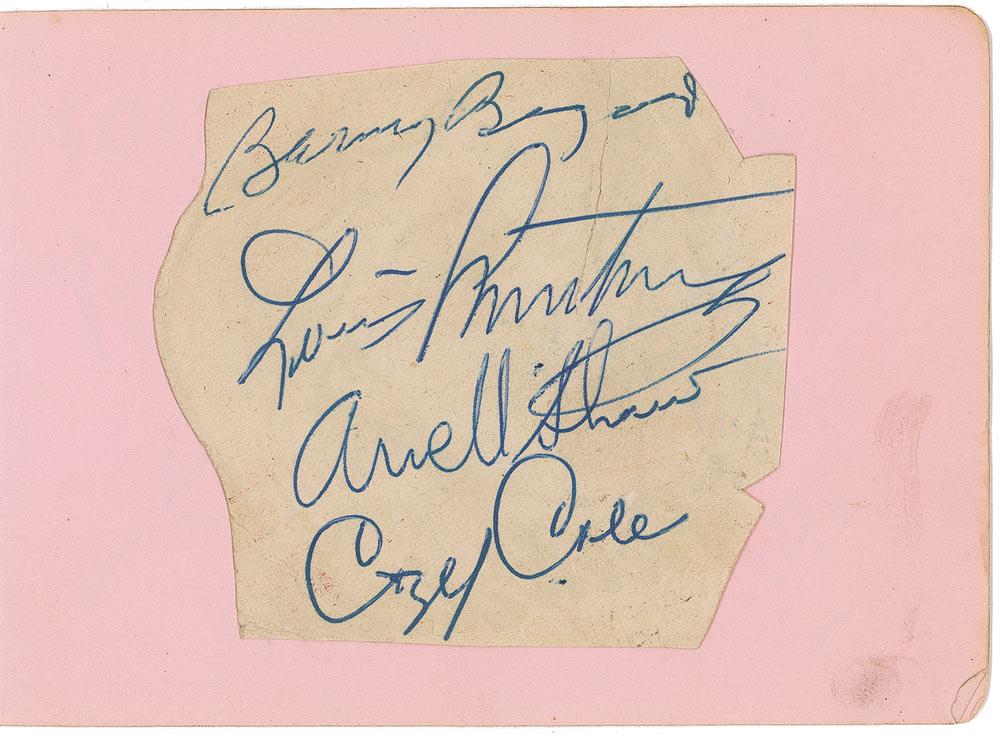 Barney Bigard
Louis Armstrong
Arvell Shaw
Cozy Cole